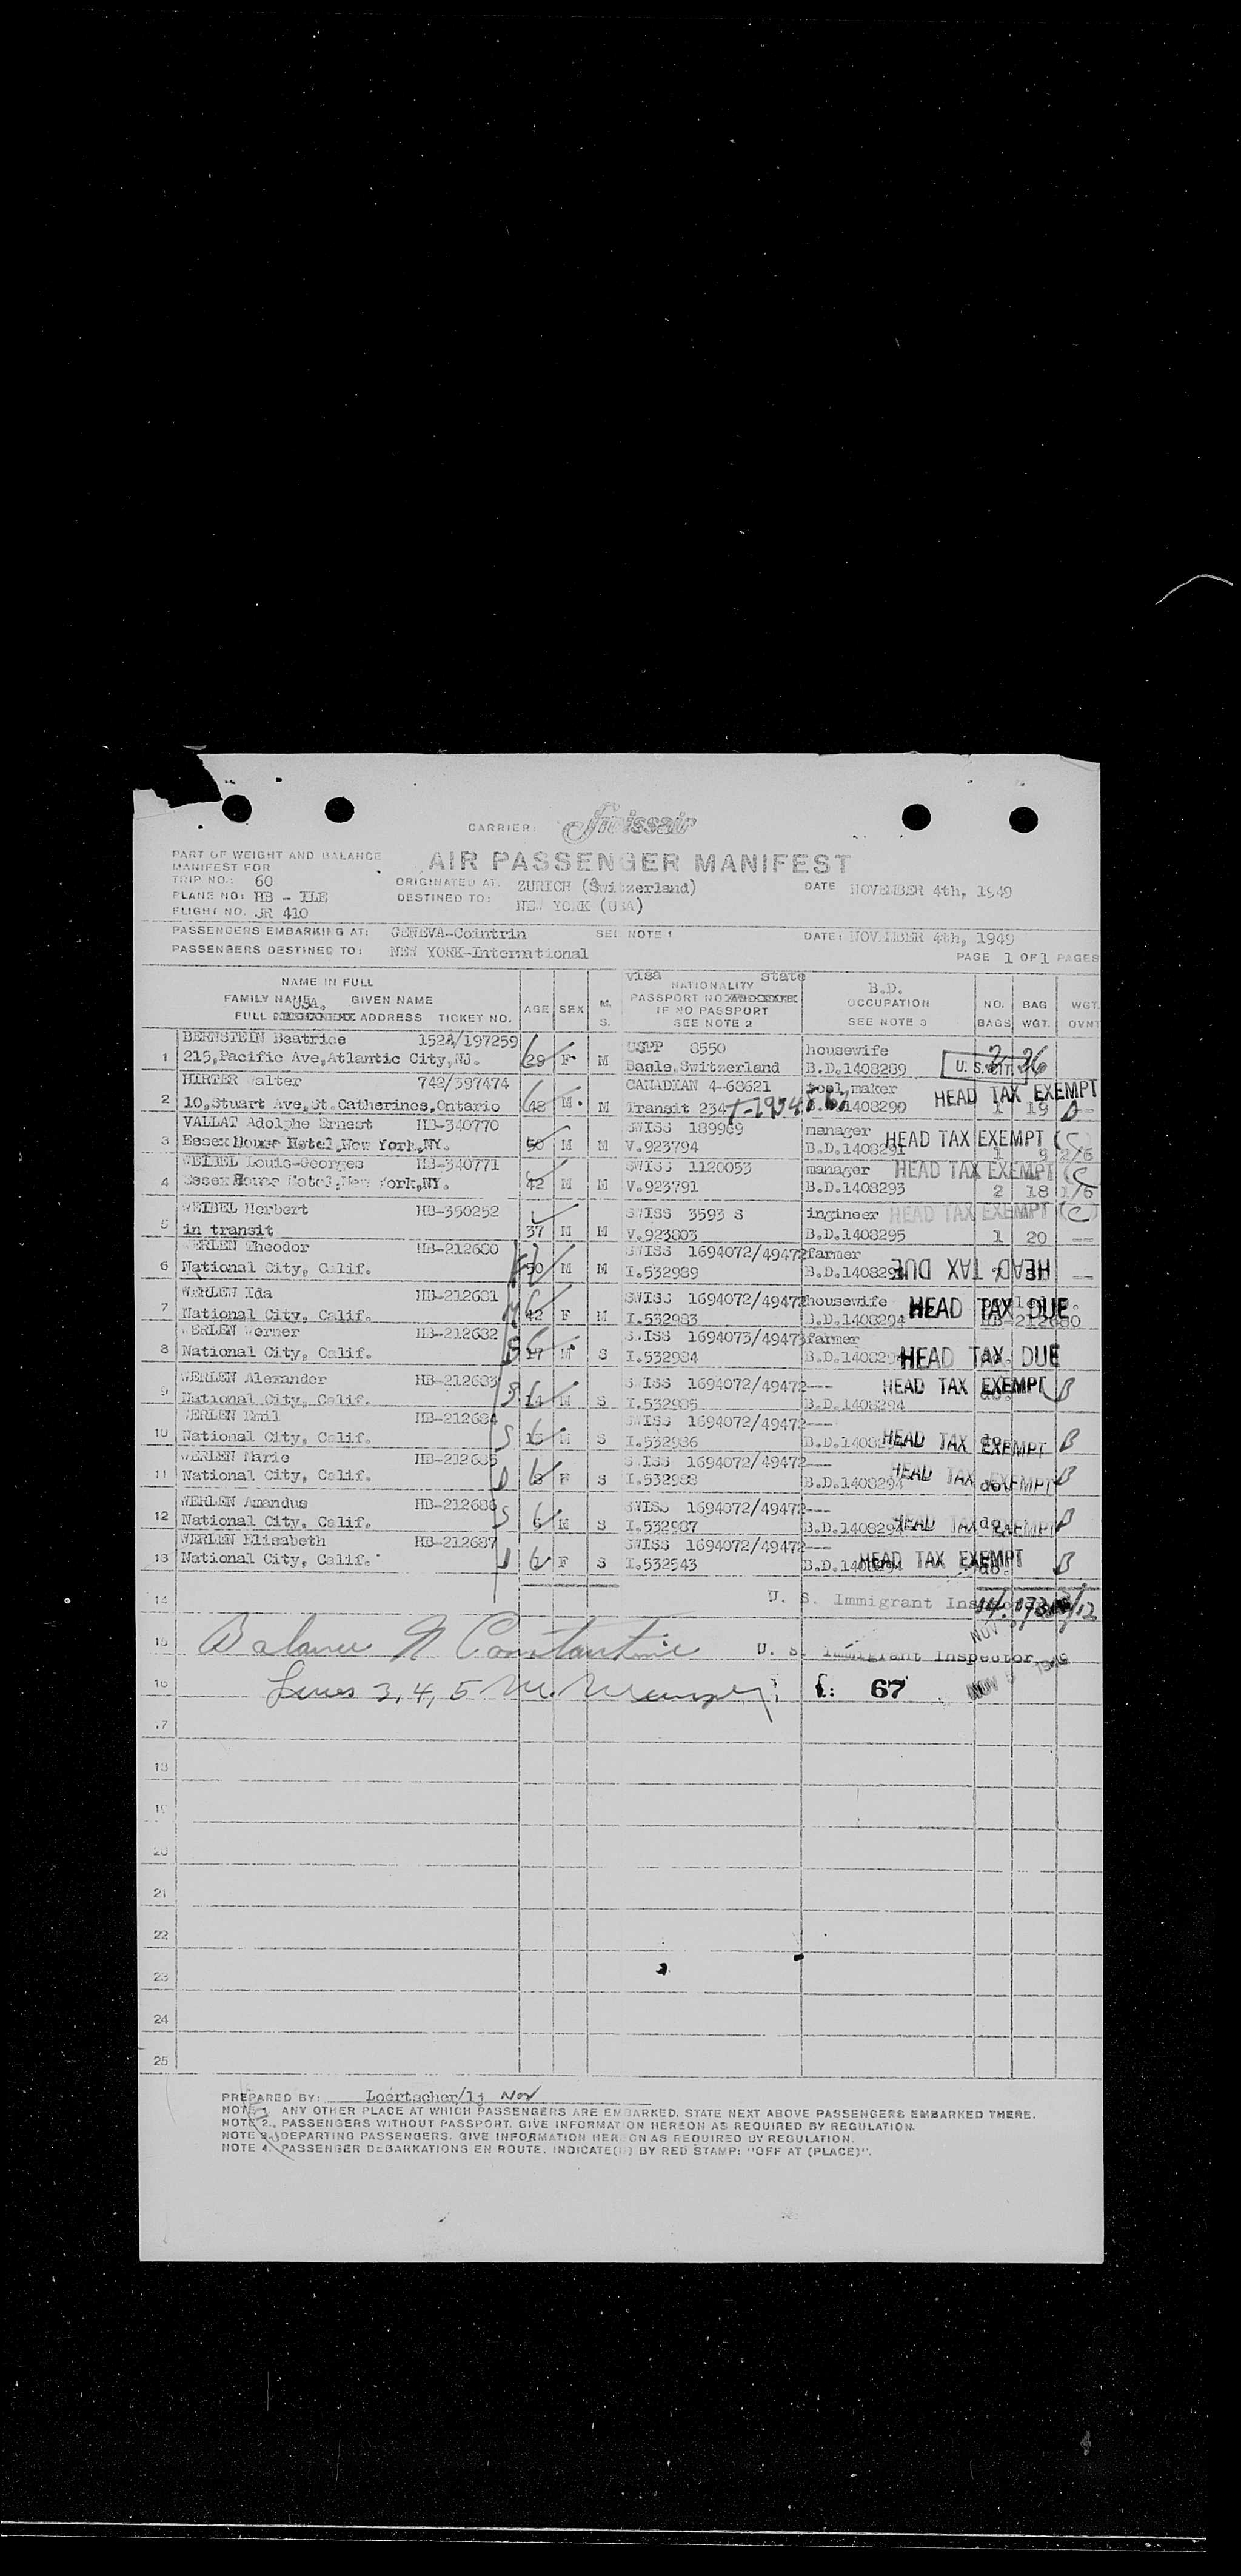 CARRIER: Swissair
AIR PASSENGER MANIFEST
PART OF WEIGHT AND BALANCE
MANIFEST FOR
TRIP NO.: 60
PLANE NO: HB - ILE
FLIGHT NO. SR 410
ORIGINATED AT: ZURICH (Switzerland)
DESTINED TO: NEW YORK (USA)
DATE NOVEMBER 4th, 1949
PASSENGERS EMBARKING AT: GENEVA-Cointrin SEE NOTE 1 DATE: NOVEMBER 4th, 1949
PASSENGERS DESTINED TO: NEW YORK-International PAGE 1 OF 1 PAGES
NAME IN FULL
FAMILY NAME GIVEN NAME
USA.
FULL ADDRESS TICKET NO.
AGE SEX M. S.
visa State
NATIONALITY
PASSPORT NO
IF NO PASSPORT
SEE NOTE 2
B.D.
OCCUPATION
SEE NOTE 3
NO. BAGS BAG WGT. WGT. OVNT
BERNSTEIN Beatrice 152A/197259 USPP 8550 housewife 2 26
1 215,Pacific Ave,Atlantic City,NJ. 29 F M Basle,Switzerland B.D.1408289 U. S. CIT.
HIRTER Walter 742/397474 CANADIAN 4-68621 tool maker HEAD TAX EXEMPT
2 10,Stuart Ave,St.Catherines,Ontario 48 M M Transit 234 1408290 1 19 --
VALLAT Adolphe Ernest HB-340770 SWISS 189989 manager HEAD TAX EXEMPT (C)
3 Essex House Hotel,New York,NY. 50 M M V.923794 B.D.1408291 1 9 2/6
WEIBEL Louis-Georges HB-340771 SWISS 1120053 manager HEAD TAX EXEMPT (C
4 Essex House Hotel,New York,NY. 42 M M V.923791 B.D.1408293 2 18 1/6
WEIBEL Herbert HB-350252 SWISS 3593 S ingineer HEAD TAX EXEMPT (C)
5 in transit 37 M M V.923803 B.D.1408295 1 20 --
WERLEN Theodor HB-212680 SWISS 1694072/49472 farmer
6 National City, Calif. 50 M M I.532989 B.D.1408294 HEAD TAX DUE --
WERLEN Ida HB-212681 SWISS 1694072/49472 housewife HEAD TAX DUE
7 National City, Calif. 42 F M I.532983 B.D.1408294 HB-212680
WERLEN Werner HB-212682 SWISS 1694073/49473 farmer
8 National City, Calif. 17 M S I.532984 B.D.1408294 HEAD TAX DUE
WERLEN Alexander HB-212683 SWISS 1694072/49472 --- HEAD TAX EXEMPT B
9 National City, Calif. 14 M S I.532985 B.D.1408294
WERLEN Emil HB-212684 SWISS 1694072/49472 ---
10 National City, Calif. M S I.532986 B.D.1408 HEAD TAX EXEMPT B
WERLEN Marie HB-212685 SWISS 1694072/49472 ---
11 National City, Calif. 8 F S I.532988 B.D.1408294 HEAD TAX EXEMPT B
WERLEN Amandus HB-212686 SWISS 1694072/49472 ---
12 National City, Calif. 6 M S I.532987 B.D.1408294 HEAD TAX EXEMPT B
WERLEN Elisabeth HB-212687 SWISS 1694072/49472 ---
13 National City, Calif. F S I.532543 B.D.1408294 HEAD TAX EXEMPT do. B
14 U. S. Immigrant Inspector
15 Balance N Constantine U. S. Immigrant Inspector NOV 5 1949
16 Lines 3, 4, 5 M. £: 67 NOV 5
17
18
19
20
21
22
23
24
25
PREPARED BY: Loertscher/lj
NOTE 1. ANY OTHER PLACE AT WHICH PASSENGERS ARE EMBARKED, STATE NEXT ABOVE PASSENGERS EMBARKED THERE.
NOTE 2. PASSENGERS WITHOUT PASSPORT. GIVE INFORMATION HEREON AS REQUIRED BY REGULATION.
NOTE 3. DEPARTING PASSENGERS. GIVE INFORMATION HEREON AS REQUIRED BY REGULATION.
NOTE 4. PASSENGER DEBARKATIONS EN ROUTE, INDICATE(D) BY RED STAMP: "OFF AT (PLACE)".